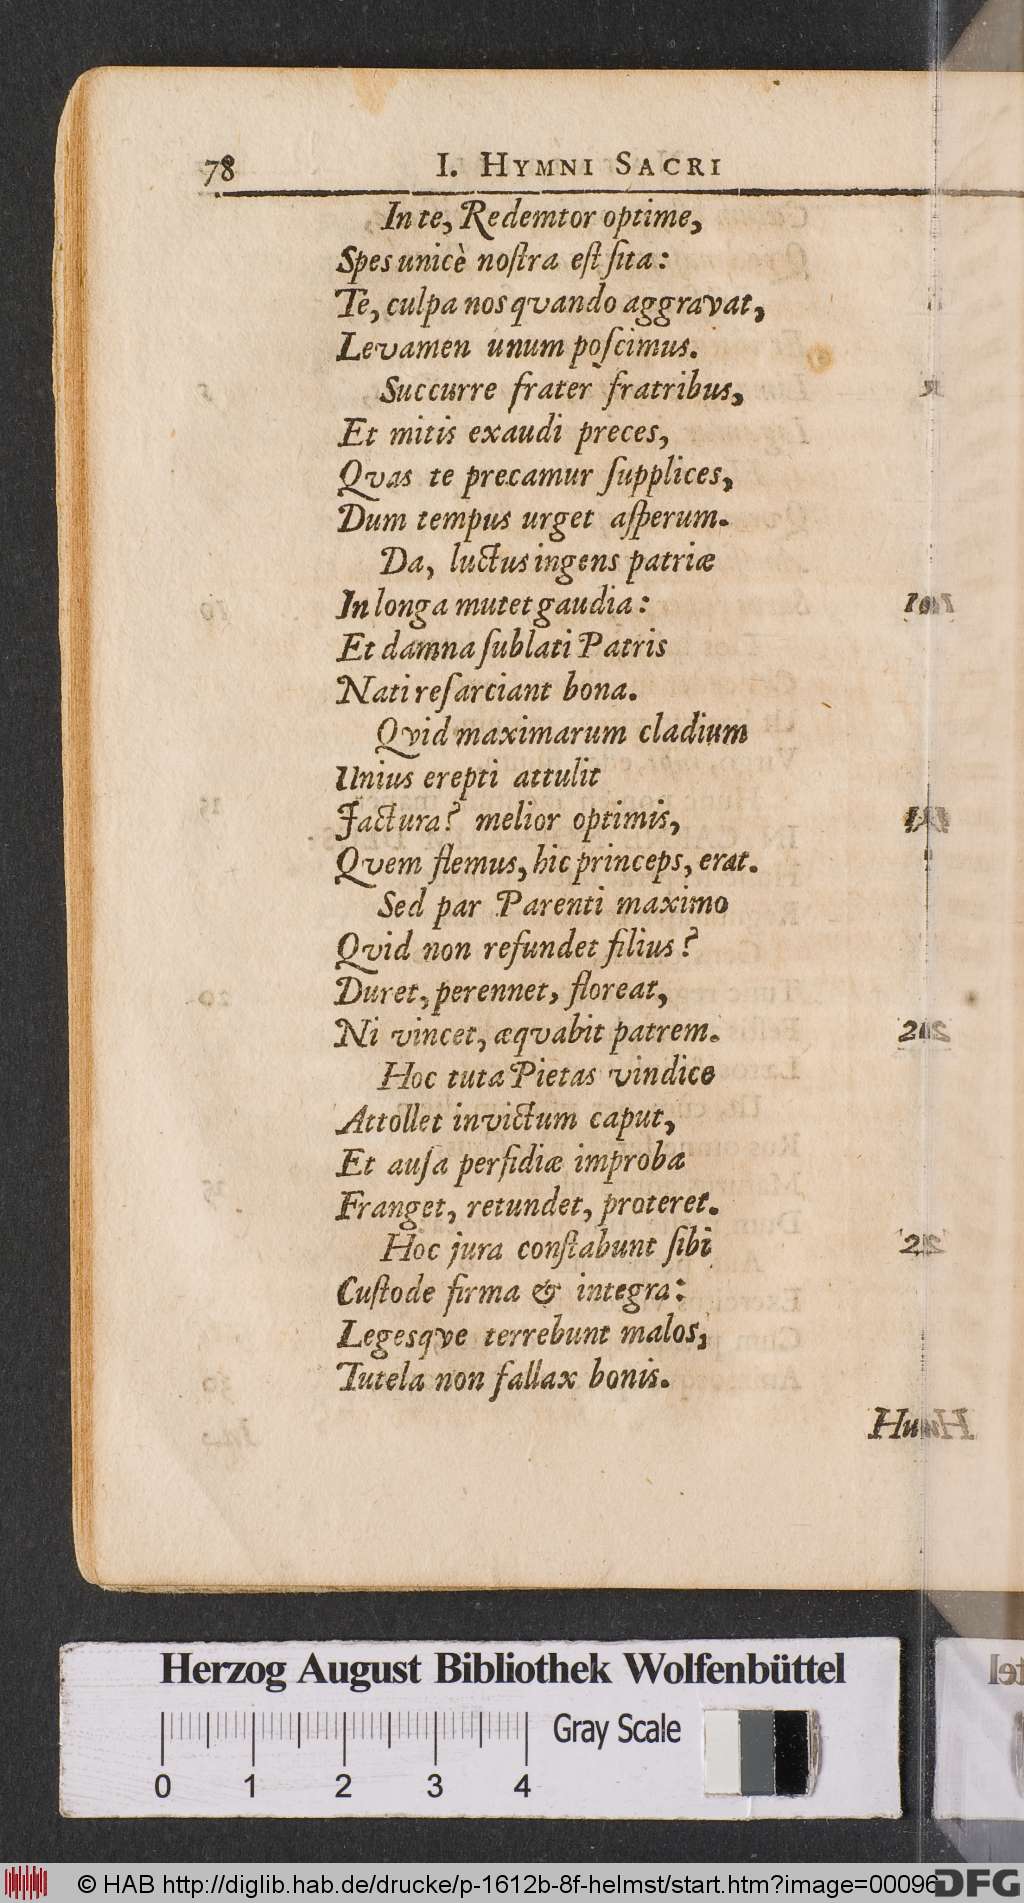 78 I. HYMNI SACRI
In te, Redemtor optime,
Spes unicè noſtra eſt ſita:
Te, culpa nos qvando aggravat,
Levamen unum poſcimus.
Succurre frater fratribus,
Et mitis exaudi preces,
Qvas te precamur ſupplices,
Dum tempus urget aſperum.
Da, luctus ingens patriæ
In longa mutet gaudia:
Et damna ſublati Patris
Nati reſarciant bona.
Qvid maximarum cladium
Unius erepti attulit
Jactura? melior optimis,
Qvem flemus, hic princeps, erat.
Sed par Parenti maximo
Qvid non refundet filius?
Duret, perennet, floreat,
Ni vincet, æqvabit patrem.
Hoc tuta Pietas vindice
Attollet invictum caput,
Et auſa perfidiæ improba
Franget, retundet, proteret.
Hoc jura conſtabunt ſibi
Cuſtode firma & integra:
Legesqve terrebunt malos,
Tutela non fallax bonis.
Herzog August Bibliothek Wolfenbüttel
Gray Scale
0 1 2 3 4
© HAB http://diglib.hab.de/drucke/p-1612b-8f-helmst/start.htm?image=00096
DFG